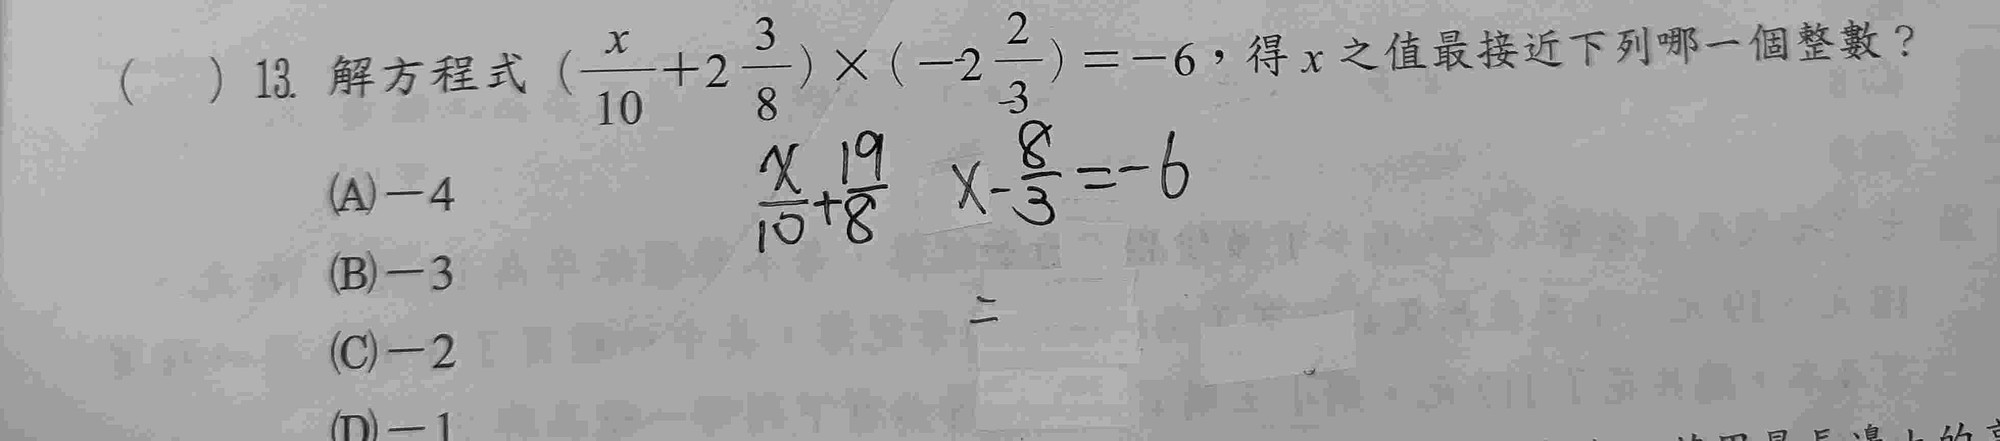 (　) 13. 解方程式 (x/10+2 3/8)×(-2 2/3)=-6，得 x 之值最接近下列哪一個整數？
(A)-4
x/10+19/8 x-8/3=-6
(B)-3
=
(C)-2
(D)-1